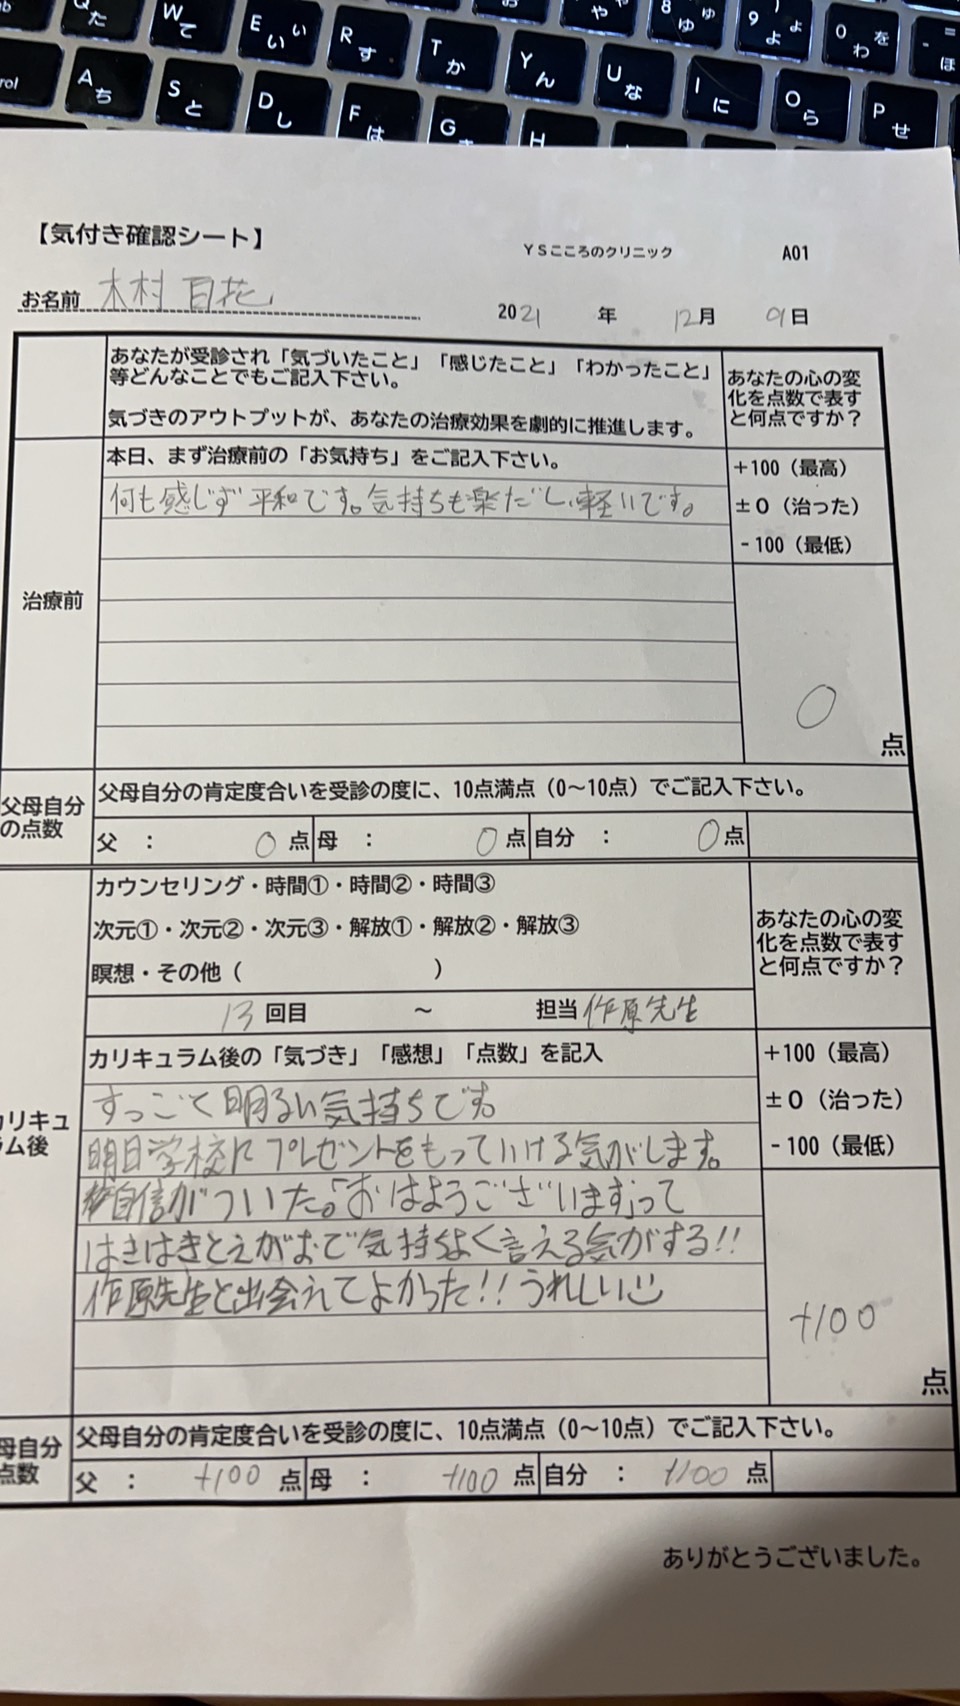 Q た
W て
E い ぃ
R す
T か
Y ん
U な
I に
O ら
P せ
A ち
S と
D し
F は
G
H
8 ゆ ゅ
9 よ ょ
0 わ を
ほ
や
お
rol
【気付き確認シート】
YSこころのクリニック A01
お名前 木村 百花
2021 年 12月 9日
あなたが受診され「気づいたこと」「感じたこと」「わかったこと」
等どんなことでもご記入下さい。
気づきのアウトプットが、あなたの治療効果を劇的に推進します。
あなたの心の変
化を点数で表す
と何点ですか？
治療前
本日、まず治療前の「お気持ち」をご記入下さい。
何も感じず平和です。気持ちも楽だし、軽いです。
+100（最高）
±0（治った）
-100（最低）
0
点
父母自分
の点数
父母自分の肯定度合いを受診の度に、10点満点（0〜10点）でご記入下さい。
父 ： 0 点 母 ： 0 点 自分 ： 0 点
カウンセリング・時間①・時間②・時間③
次元①・次元②・次元③・解放①・解放②・解放③
瞑想・その他（ ）
13 回目 〜 担当 作原先生
あなたの心の変
化を点数で表す
と何点ですか？
カリキュ
ラム後
カリキュラム後の「気づき」「感想」「点数」を記入
すっごく明るい気持ちです
明日学校にプレゼントをもっていける気がします。
自信がついた。「おはようございます」って
はきはきとえがおで気持ちよく言える気がする!!
作原先生と出会えてよかった!! うれしい
+100（最高）
±0（治った）
-100（最低）
+100
点
母自分
点数
父母自分の肯定度合いを受診の度に、10点満点（0〜10点）でご記入下さい。
父 ： +100 点 母 ： +100 点 自分 ： +100 点
ありがとうございました。